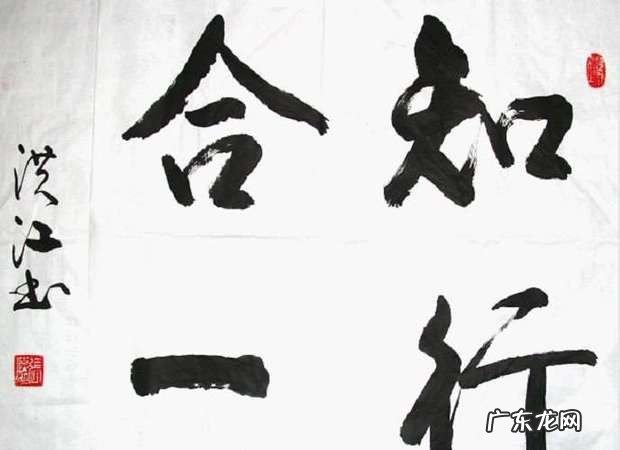 知行
合一
洪江书
广东龙网